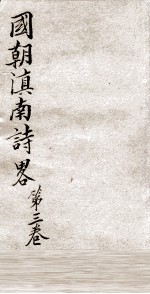 國朝滇南詩畧
第三卷